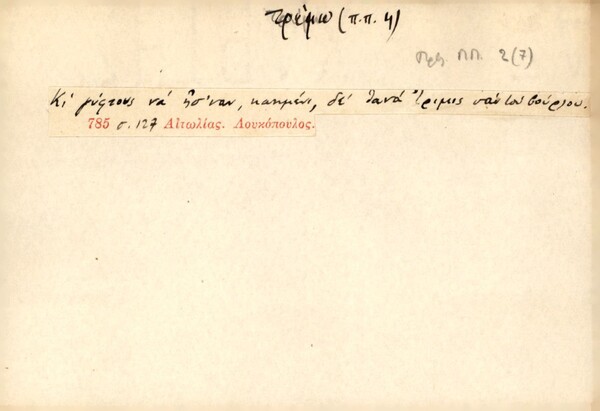 τρέμω (π.π. 4)
Πρβ. Π.Π. 2(7)
Κι γύφτους νά ἦσ'ναν, καημένι, δέ θανά 'τριμις σάν του βούρλου.
785 σ. 127 Αἰτωλίας. Λουκόπουλος.